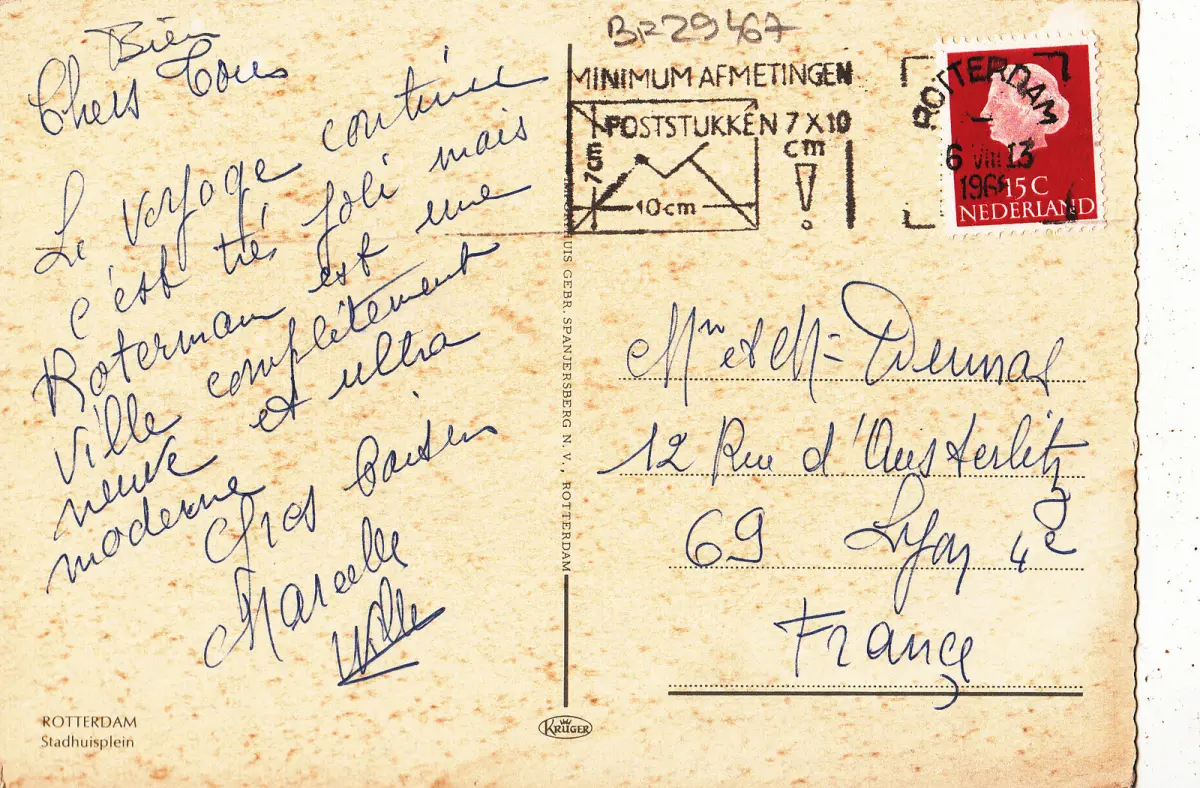 Bien
Chers Tous
Le voyage continue
c'est très joli mais
Roterman est une
ville complètement
neuve et ultra
moderne
Gros baisers
Marcelle
ROTTERDAM
Stadhuisplein
BR29467
MINIMUM AFMETINGEN
POSTSTUKKEN 7 X 10
cm !
7 cm
10 cm
ROTTERDAM
6 VIII 13
196
15 C
NEDERLAND
HUIS GEBR. SPANJERSBERG N.V., ROTTERDAM
KRÜGER
et M
12 Rue d'Austerlitz
69 Lyon 4e
France